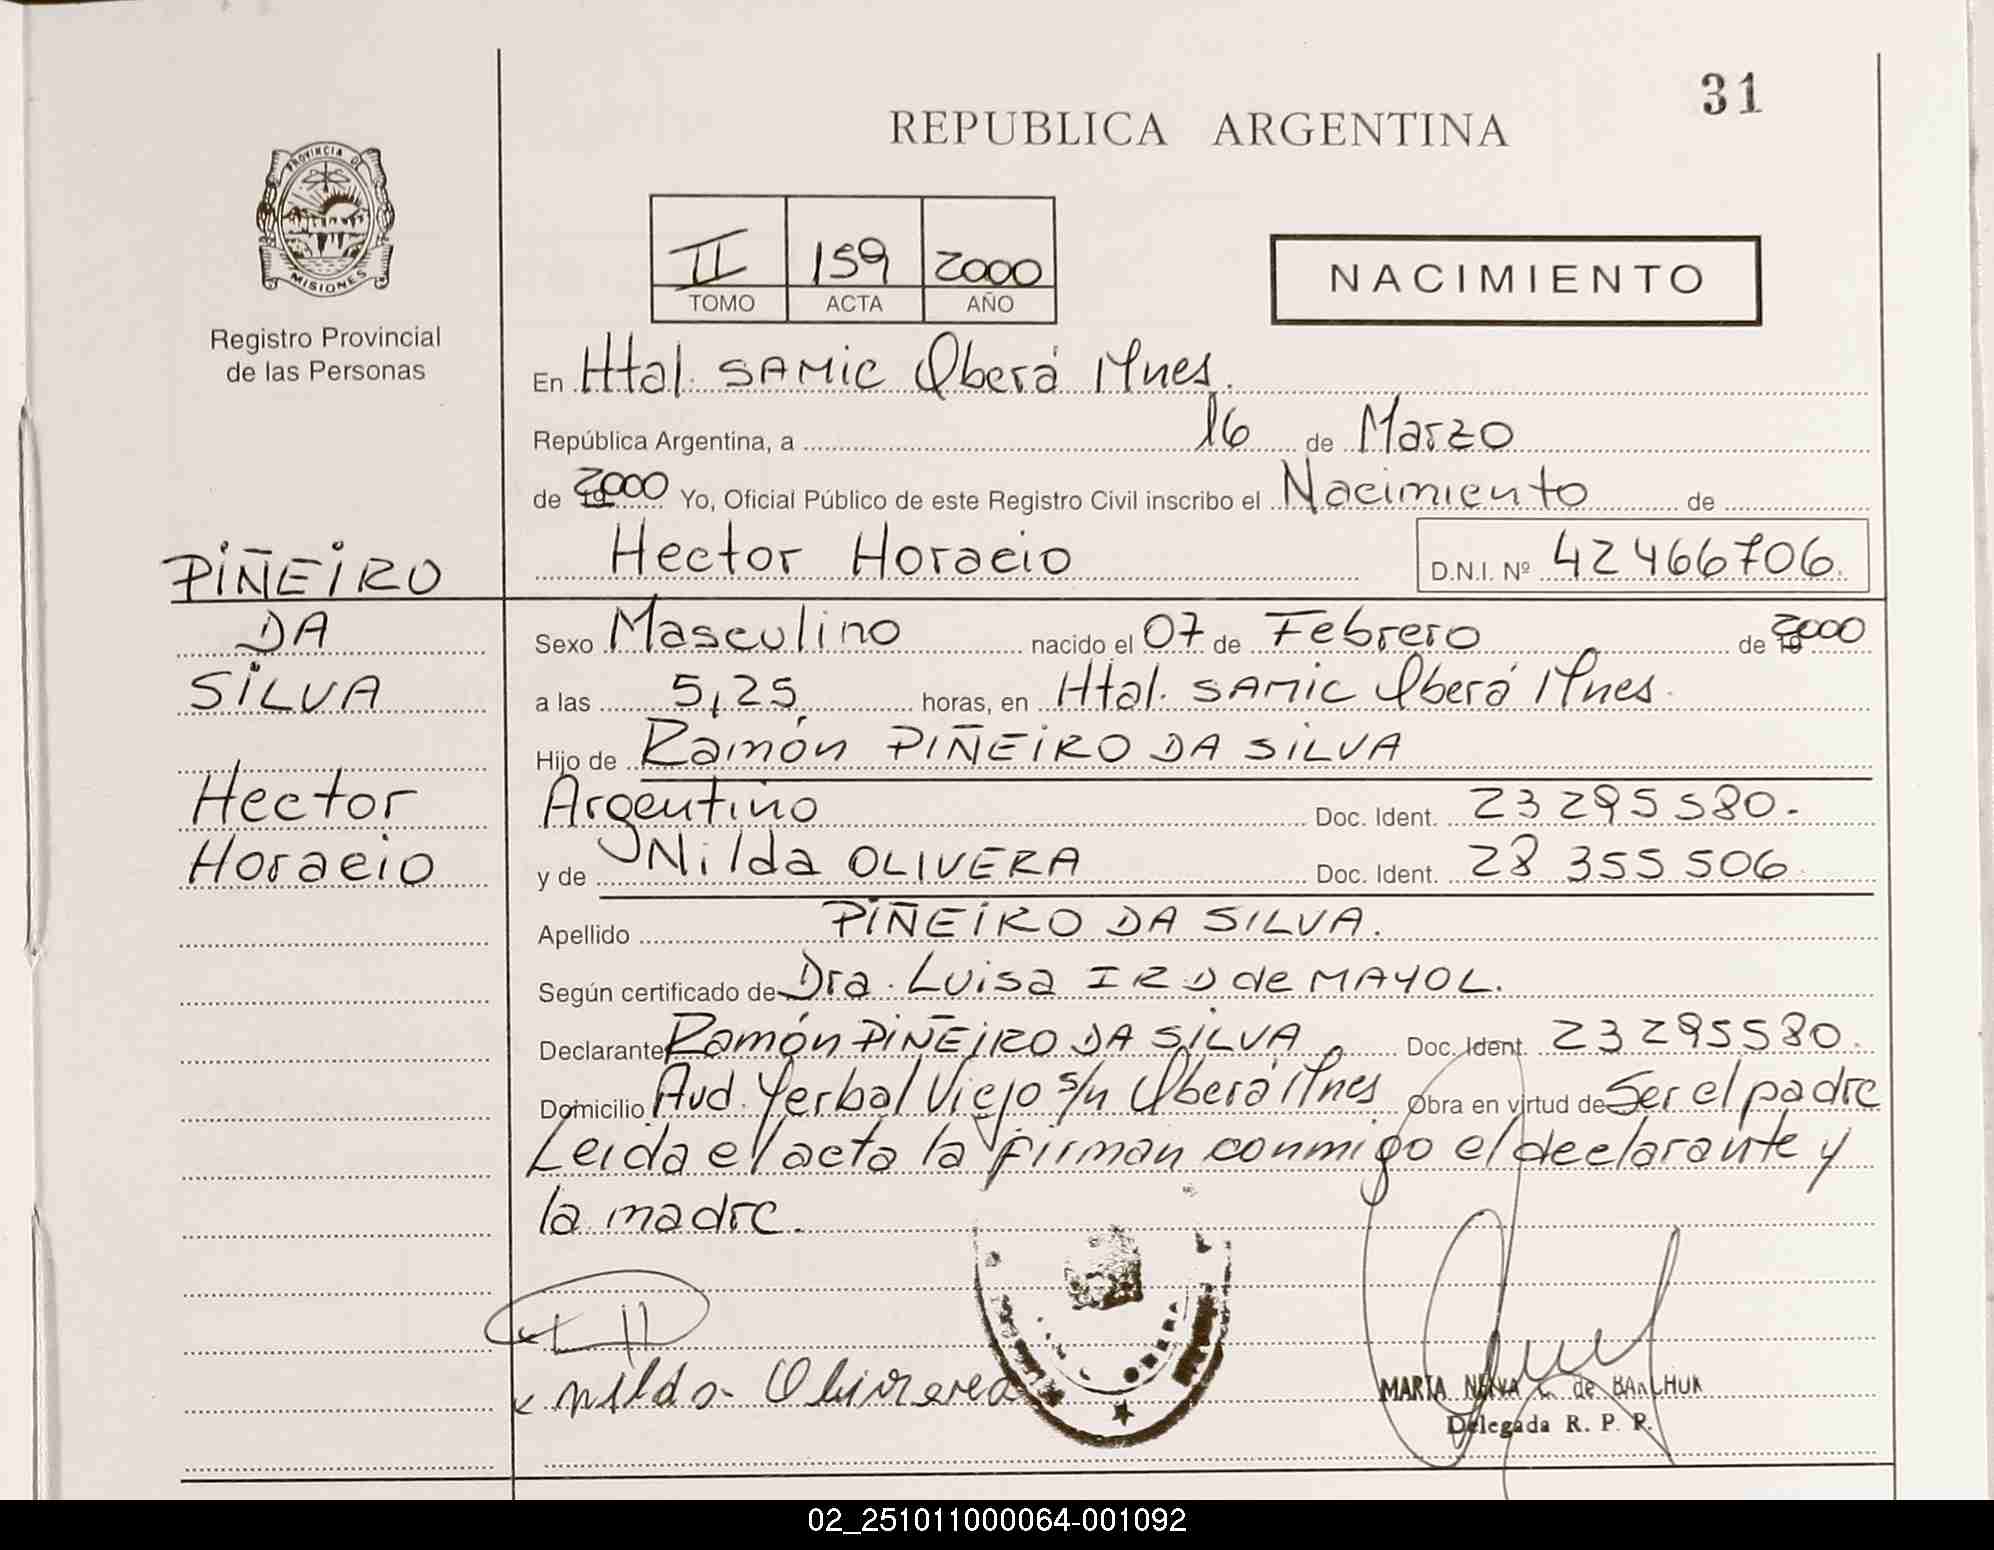 31
REPUBLICA ARGENTINA
PROVINCIA DE
MISIONES
Registro Provincial
de las Personas
II 159 2000
TOMO ACTA AÑO
NACIMIENTO
En Htal. SAMIC Oberá Mnes.
República Argentina, a 16 de Marzo
de 2000 Yo, Oficial Público de este Registro Civil inscribo el Nacimiento de
Hector Horacio D.N.I. Nº 42466706.
PIÑEIRO
DA
SILVA
Hector
Horacio
Sexo Masculino nacido el 07 de Febrero de 2000
a las 5,25 horas, en Htal. SAMIC Oberá Mnes.
Hijo de Ramón PIÑEIRO DA SILVA
Argentino Doc. Ident. 23 295 580.-
y de Nilda OLIVERA Doc. Ident. 28 355 506
Apellido PIÑEIRO DA SILVA.
Según certificado de Dra. Luisa IRD de MAYOL.
Declarante Ramón PIÑEIRO DA SILVA Doc. Ident. 23 295580.
Domicilio Avd. Yerbal Viejo s/n Oberá Mnes Obra en virtud de Ser el padre
Leida el acta la firman conmigo el declarante y
la madre.
x nilda Oliverea
MARIA C. de
Delegada R. P. P.
02_251011000064-001092